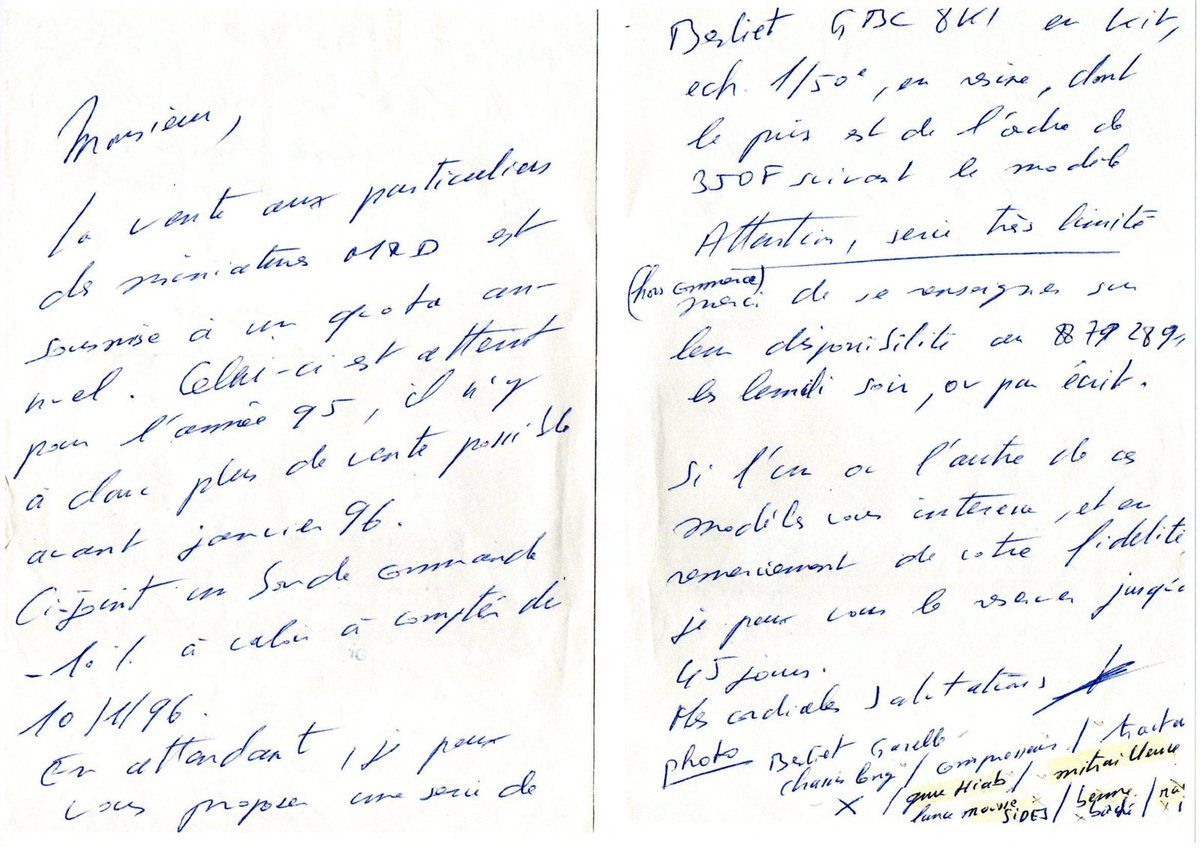 Monsieur,
la vente aux particuliers
des miniatures MRD est
soumise à un quota an-
nuel. Celui-ci est atteint
pour l'année 95, il n'y
à donc plus de vente possible
avant janvier 96.
Ci-joint un bon de commande
-10% à valoir à compter du
10/1/96.
En attendant, je peux
vous proposer une serie de
Berliet GBC 8KT en kit,
ech. 1/50e, en resine, dont
le prix est de l'ordre de
350F suivant le modèle
Attention, serie très limité
(hors commerce)
merci de se renseigner sur
leur disponibilité au 879289
les lundi soir, ou par écrit.
Si l'un ou l'autre de ces
modèles vous interesse, et en
remerciement de votre fidelité,
je peux vous le reserver jusqu'à
45 jours.
Mes cordiales Salutations
photo Berliet Gazelle
chassis long / compresseur / tracteur
X / grue Hiab / mitrailleuse
lance mousse SIDES / benne / baché